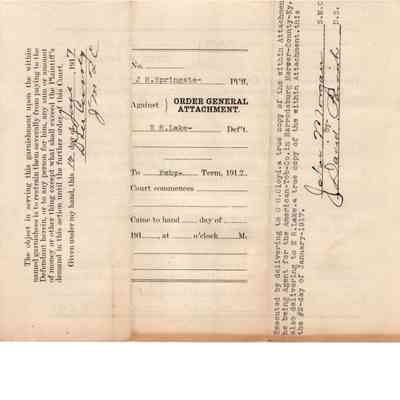 The object in serving this garnishment upon the within
named garnishee is to restrain them severally from paying to the
Defendant herein, or to any person for him, any sum or amount
of money or other thing except what shall exceed the Plaintiff's
demand in this action until the further order of this Court.
Given under my hand, this day of 1917
No.
J H.Springate- Pl'ff,
Against } ORDER GENERAL
ATTACHMENT.
E R.Lake- Def't.
To Feby- Term, 1917.
Court commences
Came to hand day of
191 , at o'clock M.
Executed by delivering to C G.Cloyd.a true copy of the within Attachment
he being Agent for the American-Tob-Co.in Harrodsburg Mercer-County-Ky.
also delivering to E R.Lake.a true copy of the within Attachment.this
the #2-day of January-1917.
John S.M.C
by David D.S.